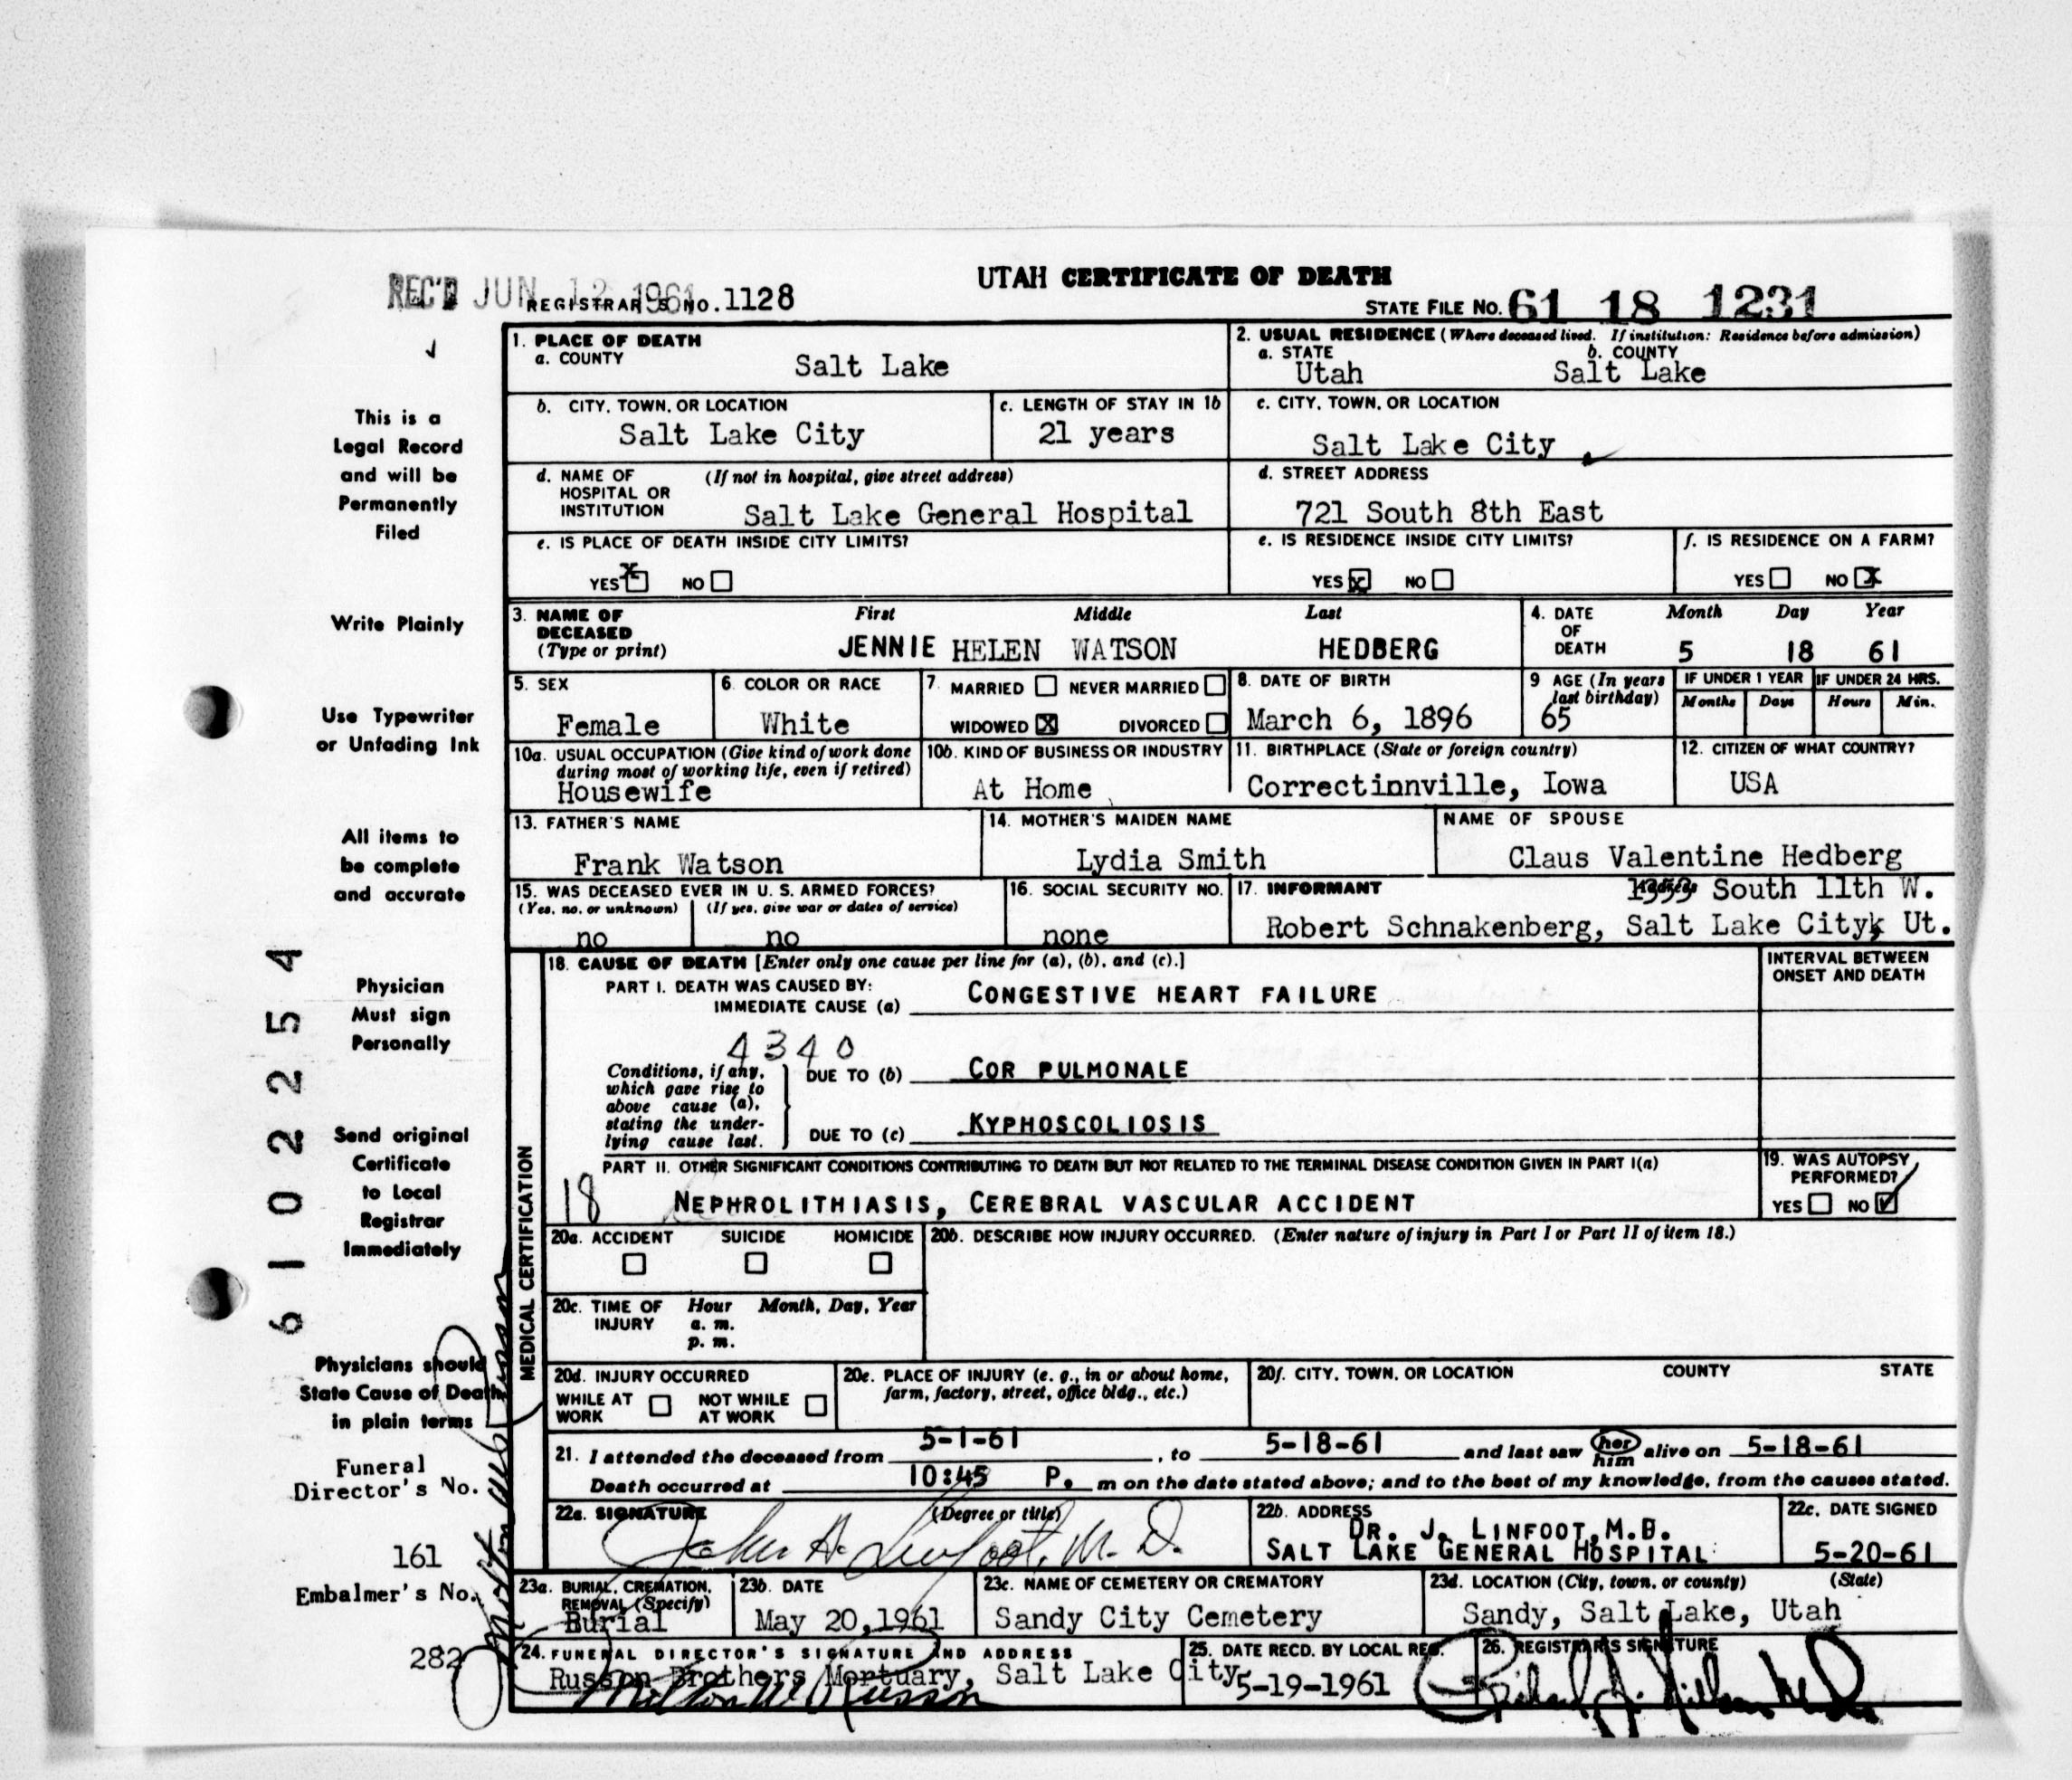 UTAH CERTIFICATE OF DEATH
REC'D JUN 12 1961
REGISTRAR'S NO. 1128
STATE FILE NO. 61 18 1231
1. PLACE OF DEATH
a. COUNTY
Salt Lake
2. USUAL RESIDENCE (Where deceased lived. If institution: Residence before admission)
a. STATE b. COUNTY
Utah Salt Lake
b. CITY, TOWN, OR LOCATION
Salt Lake City
c. LENGTH OF STAY IN 1b
21 years
c. CITY, TOWN, OR LOCATION
Salt Lake City
d. NAME OF (If not in hospital, give street address)
HOSPITAL OR
INSTITUTION
Salt Lake General Hospital
d. STREET ADDRESS
721 South 8th East
e. IS PLACE OF DEATH INSIDE CITY LIMITS?
YES x NO
e. IS RESIDENCE INSIDE CITY LIMITS?
YES x NO
f. IS RESIDENCE ON A FARM?
YES NO x
3. NAME OF DECEASED (Type or print)
First Middle Last
JENNIE HELEN WATSON HEDBERG
4. DATE OF DEATH
Month Day Year
5 18 61
5. SEX
Female
6. COLOR OR RACE
White
7. MARRIED NEVER MARRIED
WIDOWED X DIVORCED
8. DATE OF BIRTH
March 6, 1896
9 AGE (In years last birthday)
65
IF UNDER 1 YEAR
Months Days
IF UNDER 24 HRS.
Hours Min.
10a. USUAL OCCUPATION (Give kind of work done
during most of working life, even if retired)
Housewife
10b. KIND OF BUSINESS OR INDUSTRY
At Home
11. BIRTHPLACE (State or foreign country)
Correctinnville, Iowa
12. CITIZEN OF WHAT COUNTRY?
USA
13. FATHER'S NAME
Frank Watson
14. MOTHER'S MAIDEN NAME
Lydia Smith
NAME OF SPOUSE
Claus Valentine Hedberg
15. WAS DECEASED EVER IN U. S. ARMED FORCES?
(Yes, no, or unknown) (If yes, give war or dates of service)
no no
16. SOCIAL SECURITY NO.
none
17. INFORMANT
South 11th W.
Robert Schnakenberg, Salt Lake City, Ut.
MEDICAL CERTIFICATION
18. CAUSE OF DEATH [Enter only one cause per line for (a), (b), and (c).]
INTERVAL BETWEEN
ONSET AND DEATH
PART I. DEATH WAS CAUSED BY:
IMMEDIATE CAUSE (a) CONGESTIVE HEART FAILURE
4340
Conditions, if any,
which gave rise to
above cause (a),
stating the under-
lying cause last.
DUE TO (b) COR PULMONALE
DUE TO (c) KYPHOSCOLIOSIS
PART II. OTHER SIGNIFICANT CONDITIONS CONTRIBUTING TO DEATH BUT NOT RELATED TO THE TERMINAL DISEASE CONDITION GIVEN IN PART I(a)
18 NEPHROLITHIASIS, CEREBRAL VASCULAR ACCIDENT
19. WAS AUTOPSY
PERFORMED?
YES NO ✓
20a. ACCIDENT SUICIDE HOMICIDE
20b. DESCRIBE HOW INJURY OCCURRED. (Enter nature of injury in Part I or Part II of item 18.)
20c. TIME OF INJURY
Hour Month, Day, Year
a. m.
p. m.
20d. INJURY OCCURRED
WHILE AT WORK NOT WHILE AT WORK
20e. PLACE OF INJURY (e. g., in or about home,
farm, factory, street, office bldg., etc.)
20f. CITY, TOWN, OR LOCATION COUNTY STATE
21. I attended the deceased from 5-1-61, to 5-18-61 and last saw her him alive on 5-18-61
Death occurred at 10:45 P. m on the date stated above; and to the best of my knowledge, from the causes stated.
22a. SIGNATURE (Degree or title)
John A. Linfoot, M. D.
22b. ADDRESS
DR. J. LINFOOT, M.D.
SALT LAKE GENERAL HOSPITAL
22c. DATE SIGNED
5-20-61
23a. BURIAL, CREMATION,
REMOVAL (Specify)
Burial
23b. DATE
May 20, 1961
23c. NAME OF CEMETERY OR CREMATORY
Sandy City Cemetery
23d. LOCATION (City, town, or county) (State)
Sandy, Salt Lake, Utah
24. FUNERAL DIRECTOR'S SIGNATURE AND ADDRESS
Russon Brothers Mortuary, Salt Lake City
Milton W Russon
25. DATE RECD. BY LOCAL REG.
5-19-1961
26. REGISTRAR'S SIGNATURE
This is a
Legal Record
and will be
Permanently
Filed
Write Plainly
Use Typewriter
or Unfading Ink
All items to
be complete
and accurate
Physician
Must sign
Personally
Send original
Certificate
to Local
Registrar
Immediately
Physicians should
State Cause of Death
in plain terms
Funeral
Director's No.
161
Embalmer's No.
282
61 02254